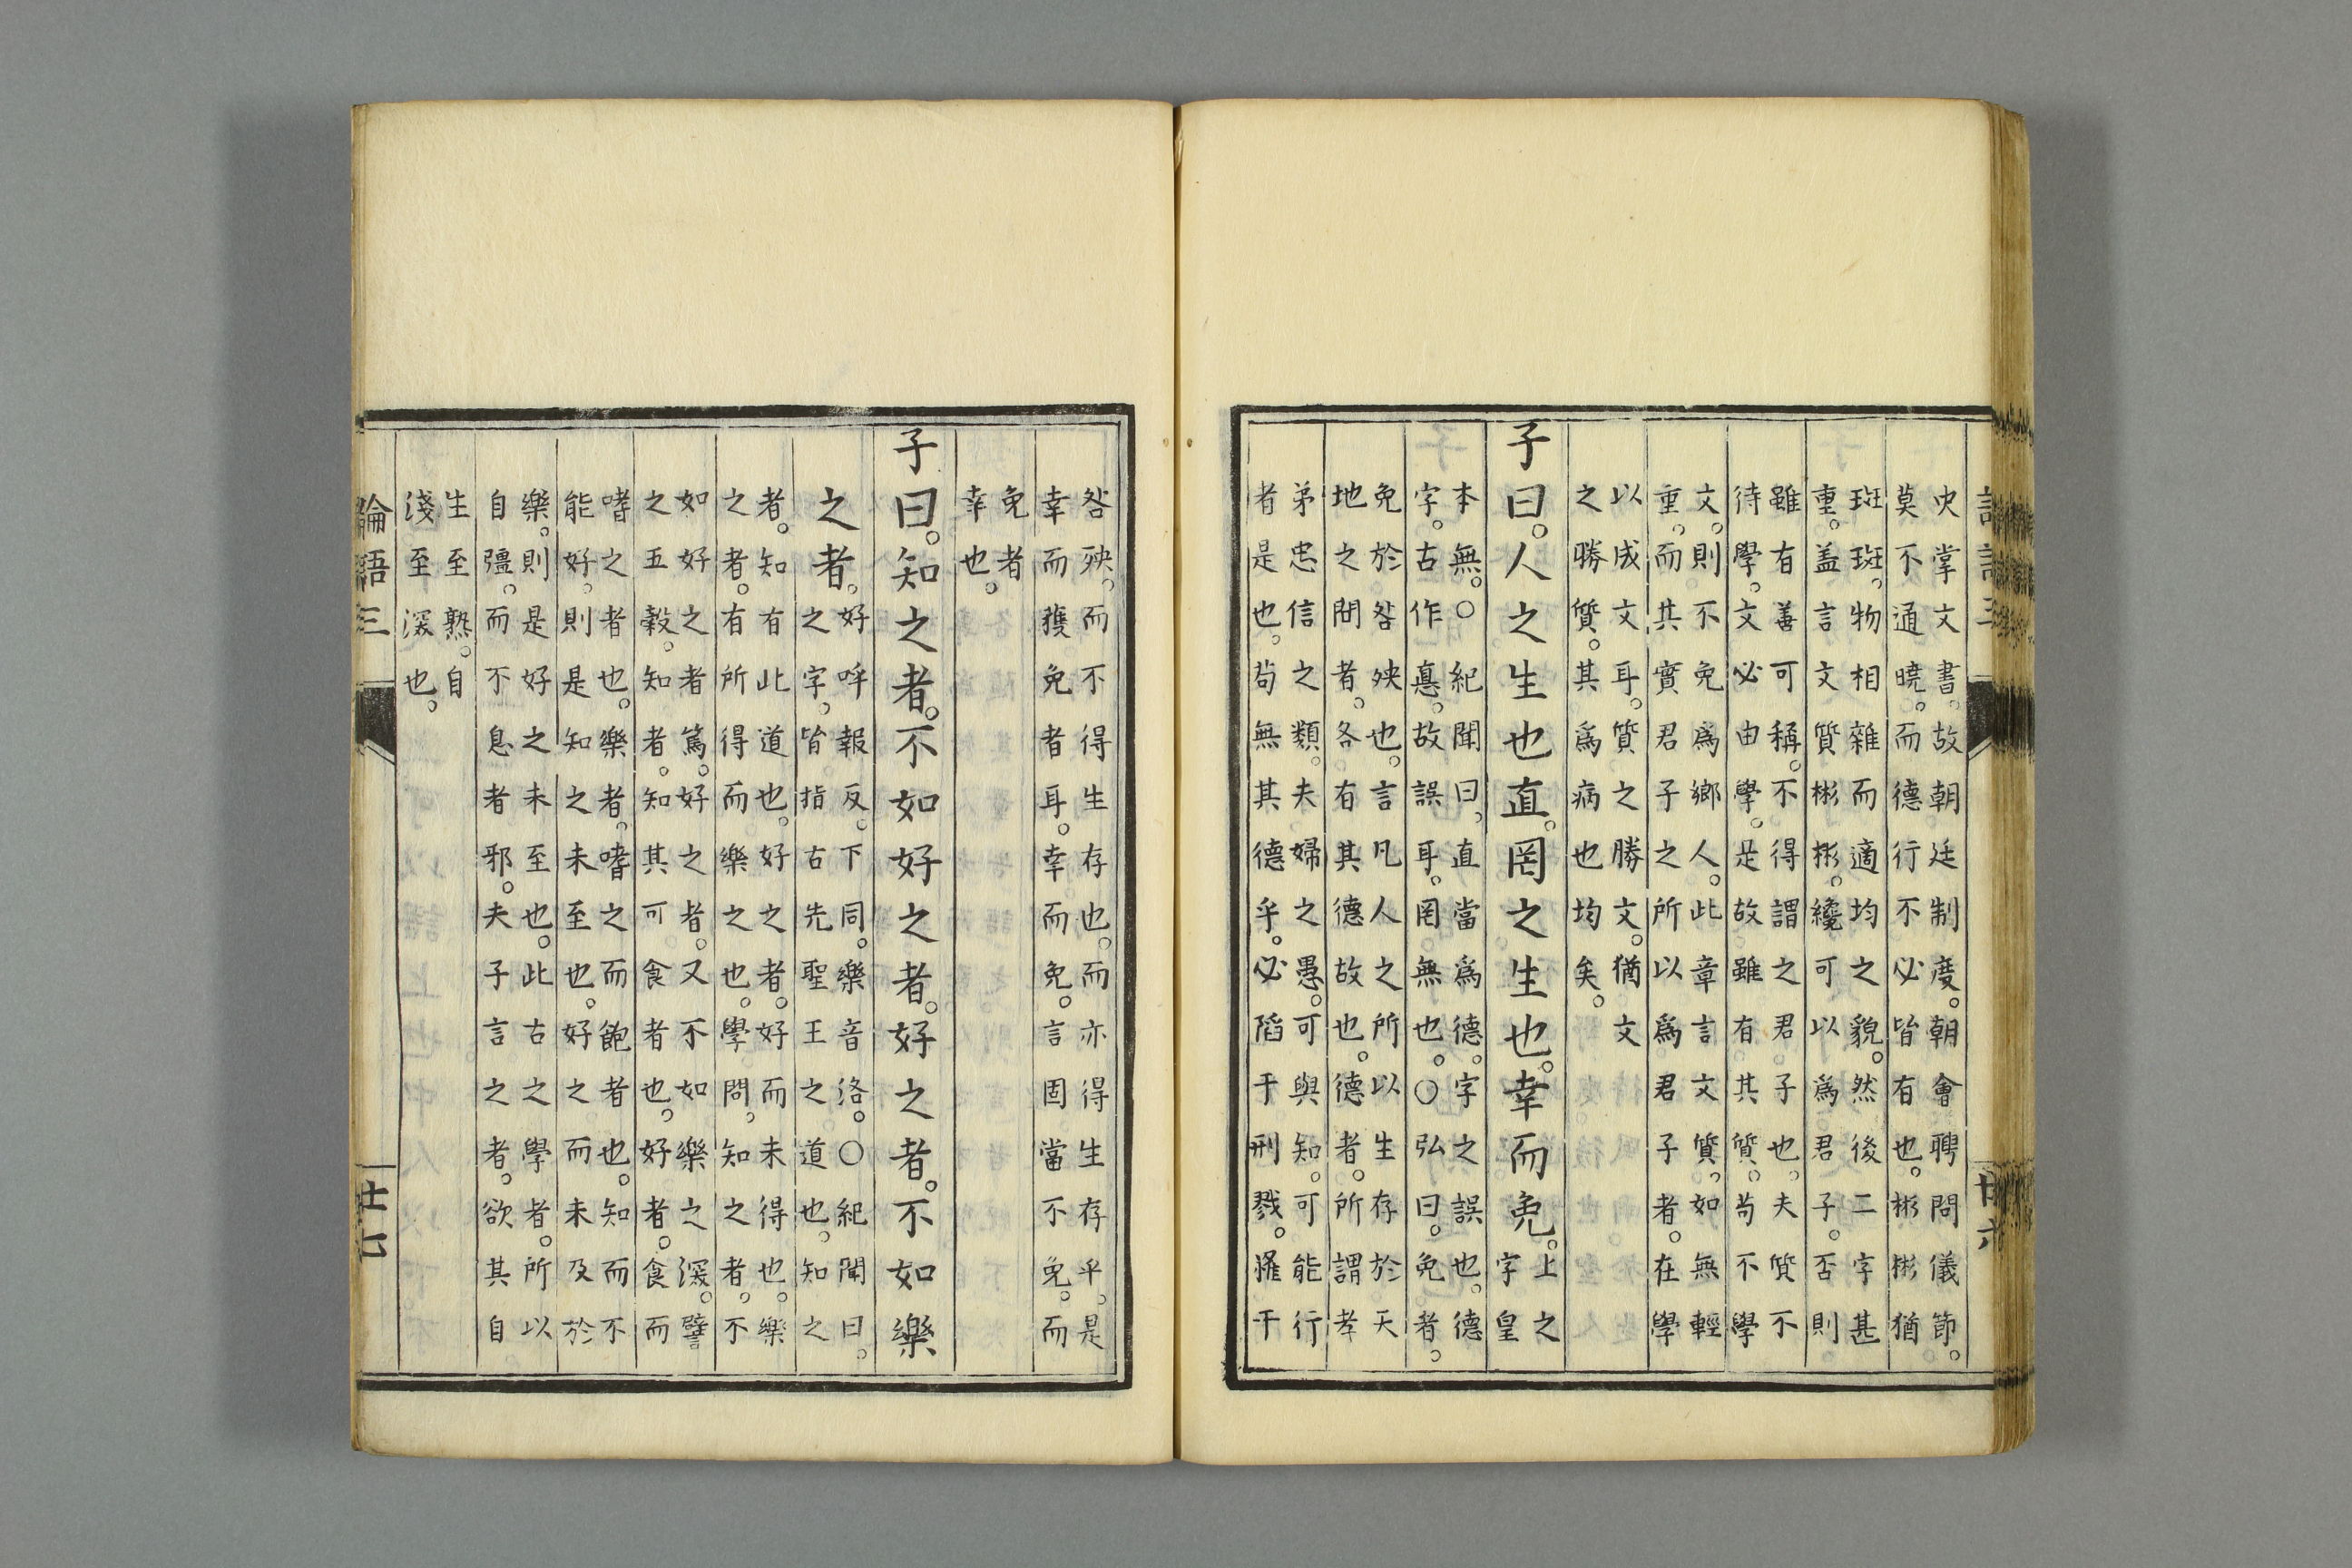 史掌文書。故朝廷制度。朝會聘問儀節。
莫不通曉。而德行不必皆有也。彬彬猶
斑斑。物相雜而適均之貌。然後二字甚
重。盖言文質彬彬。纔可以爲君子。否則
雖有善可稱。不得謂之君子也。夫質不
待學。文必由學。是故雖有其質。苟不學
文。則不免爲鄉人。此章言文質。如無輕
重。而其實君子之所以爲君子者。在學
以成文耳。質之勝文。猶文
之勝質。其爲病也均矣。
子曰。人之生也直。罔之生也。幸而免。上之
字皇
本無。○紀聞曰。直當爲德。字之誤也。德
字。古作悳。故誤耳。罔無也。○弘曰。免者。
免於咎殃也。言凡人之所以生存於天
地之間者。各有其德故也。德者。所謂孝
弟忠信之類。夫婦之愚。可與知。可能行
者是也。苟無其德乎。必陷于刑戮。罹于
咎殃。而不得生存也。而亦得生存乎。是
幸而獲免者耳。幸而免。言固當不免。而
免者
幸也。
子曰。知之者。不如好之者。好之者。不如樂
之者。好呼報反。下同。樂音洛。○紀聞曰。
之字。皆指古先聖王之道也。知之
者。知有此道也。好之者。好而未得也。樂
之者。有所得而樂之也。學問。知之者。不
如好之者篤。好之者。又不如樂之深。譬
之五穀。知者。知其可食者也。好者。食而
嗜之者也。樂者。嗜之而飽者也。知而不
能好。則是知之未至也。好之而未及於
樂。則是好之未至也。此古之學者。所以
自彊。而不息者邪。夫子言之者。欲其自
生至熟。自
淺至深也。
論語三
廿七
廿六